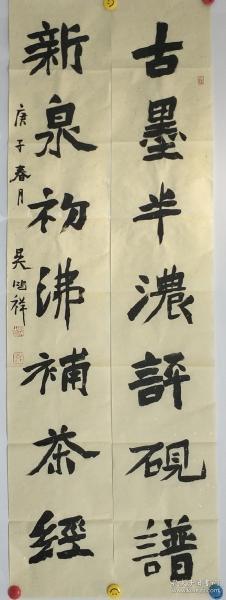 古墨半濃評硯譜
新泉初沸補茶經
庚子春月
吴鸿祥